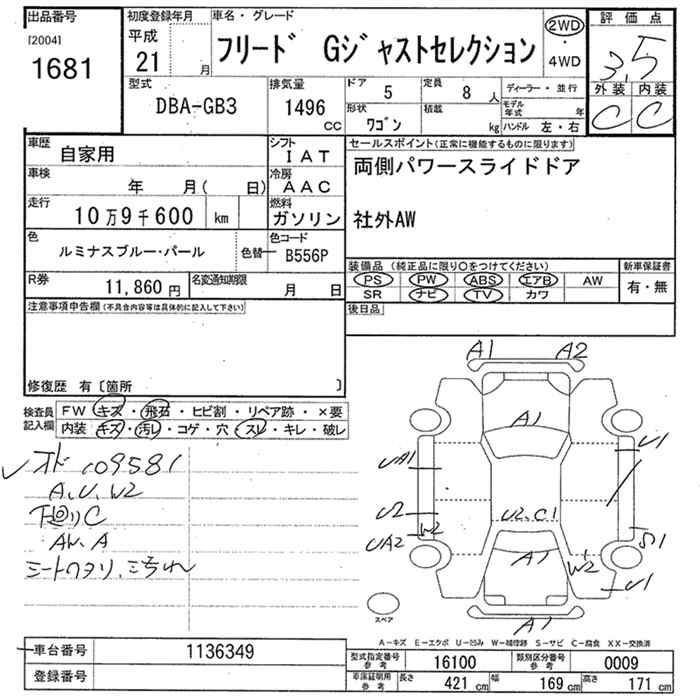 出品番号
[2004]
1681
初度登録年月
平成
21 月
車名・グレード
フリード Gジャストセレクション
2WD
・
4WD
評価点
3.5
外装 内装
C C
型式
DBA-GB3
排気量
1496
CC
ドア
5
定員
8 人
形状
ワゴン
積載
kg
ディーラー・並行
モデル年式 年
ハンドル 左・右
車歴
自家用
シフト
IAT
車検
年 月( 日)
冷房
AAC
走行
10万9千600 km
燃料
ガソリン
色
ルミナスブルー・パール
色替
色コード
B556P
R券
11,860 円
名変通知期限
月 日
セールスポイント(正常に機能するものに限ります)
両側パワースライドドア
社外AW
装備品 (純正品に限り〇をつけてください)
PS PW ABS エアB AW
SR ナビ TV カワ
新車保証書
有・無
後日品
注意事項申告欄(不具合内容等は具体的に記入して下さい)
修復歴 有〔箇所 〕
検査員
記入欄
FW キズ・飛石・ヒビ割・リペア跡・×要
内装 キズ・汚レ・コゲ・穴・スレ・キレ・破レ
オド 109581
A、U、W2
下廻りC
AW、A
A1 A2
A1
UA1
U1
U2
W2
U2、C1
UA2
S1
A1
W2
U1
A1
スペア
A-キズ E-エクボ U-凹み W-補修跡 S-サビ C-腐食 XX-交換済
車台番号
1136349
登録番号
型式指定番号
参考
16100
類別区分番号
参考
0009
車庫証明用
参考
長さ
421 cm
幅
169 cm
高さ
171 cm